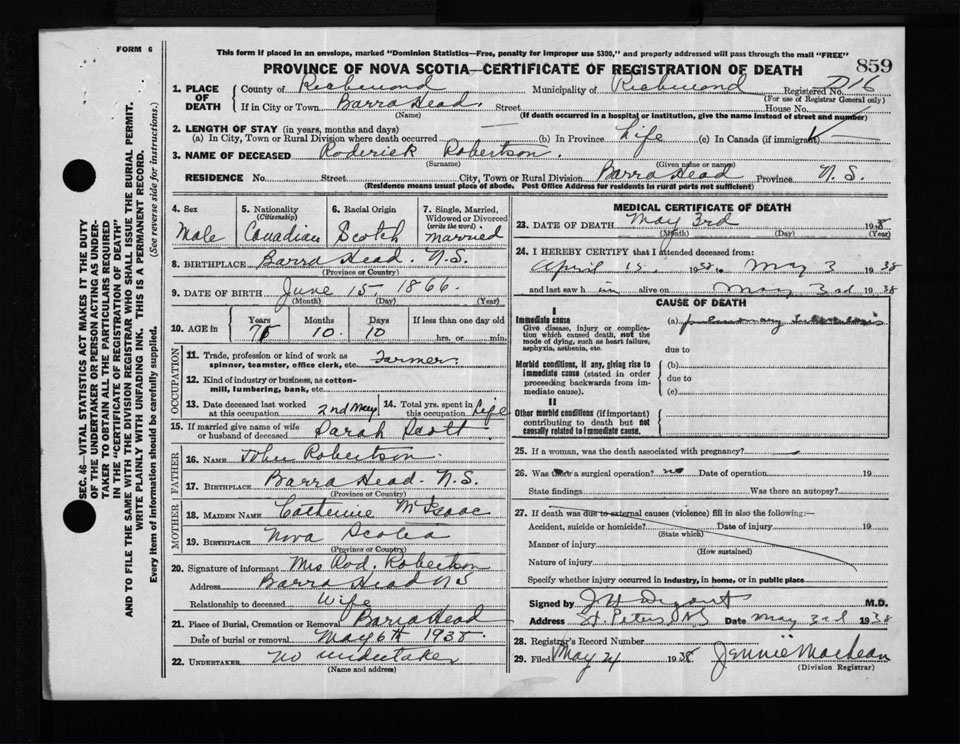 FORM 6
This form if placed in an envelope, marked "Dominion Statistics—Free, penalty for improper use $300," and properly addressed will pass through the mail "FREE"
PROVINCE OF NOVA SCOTIA—CERTIFICATE OF REGISTRATION OF DEATH
859
1. PLACE OF DEATH
County of Richmond Municipality of Richmond Registered No. D16
(For use of Registrar General only)
If in City or Town Barra Head. Street House No.
(Name) (If death occurred in a hospital or institution, give the name instead of street and number)
2. LENGTH OF STAY (in years, months and days)
(a) In City, Town or Rural Division where death occurred (b) In Province Life (c) In Canada (if immigrant)
3. NAME OF DECEASED Roderick Robertson.
(Surname) (Given name or name)
RESIDENCE No. Street City, Town or Rural Division Barra Head Province N.S.
(Residence means usual place of abode. Post Office Address for residents in rural parts not sufficient)
4. Sex
Male
5. Nationality
(Citizenship)
Canadian
6. Racial Origin
Scotch
7. Single, Married, Widowed or Divorced
(write the word)
Married
8. BIRTHPLACE Barra Head. N.S.
(Province or Country)
9. DATE OF BIRTH June 15, 1866.
(Month) (Day) (Year)
10. AGE in
Years Months Days If less than one day old
10 10 hrs. or min.
OCCUPATION
11. Trade, profession or kind of work as spinner, teamster, office clerk, etc. Farmer.
12. Kind of industry or business, as cotton-mill, lumbering, bank, etc.
13. Date deceased last worked at this occupation 2nd May
14. Total yrs. spent in this occupation Life
15. If married give name of wife or husband of deceased Sarah Scott.
FATHER
16. NAME John Robertson.
17. BIRTHPLACE Barra Head. N.S.
(Province or Country)
MOTHER
18. MAIDEN NAME Catherine McIsaac
19. BIRTHPLACE Nova Scotia
(Province or Country)
20. Signature of informant Mrs Rod. Robertson
Address Barra Head NS
Relationship to deceased Wife
21. Place of Burial, Cremation or Removal Barra Head
Date of burial or removal May 6th 1938.
22. UNDERTAKER No undertaker
(Name and address)
MEDICAL CERTIFICATE OF DEATH
23. DATE OF DEATH May 3rd 1938
(Month) (Day) (Year)
24. I HEREBY CERTIFY that I attended deceased from:
April 15 1938 to May 3 1938
and last saw h im alive on May 3rd 1938
CAUSE OF DEATH
I
Immediate cause
Give disease, injury or complication which caused death, not the mode of dying, such as heart failure, asphyxia, asthenia, etc.
(a) pulmonary tuberculosis
due to
Morbid conditions, if any, giving rise to immediate cause (stated in order proceeding backwards from immediate cause).
(b)
due to
(c)
II
Other morbid conditions (if important) contributing to death but not causally related to immediate cause.
25. If a woman, was the death associated with pregnancy?
26. Was there a surgical operation? no Date of operation 19
State findings Was there an autopsy?
27. If death was due to external causes (violence) fill in also the following:—
Accident, suicide or homicide? Date of injury 19
(State which)
Manner of injury
(How sustained)
Nature of injury
Specify whether injury occurred in industry, in home, or in public place
Signed by M.D.
Address St. Peters NS Date May 3rd 1938
28. Registrar's Record Number
29. Filed May 4 1938 Jennie MacLean
(Division Registrar)
SEC. 46—VITAL STATISTICS ACT MAKES IT THE DUTY
OF THE UNDERTAKER OR PERSON ACTING AS UNDER-
TAKER TO OBTAIN ALL THE PARTICULARS REQUIRED
IN THE "CERTIFICATE OF REGISTRATION OF DEATH"
AND TO FILE THE SAME WITH THE DIVISION REGISTRAR WHO SHALL ISSUE THE BURIAL PERMIT.
WRITE PLAINLY WITH UNFADING INK. THIS IS A PERMANENT RECORD.
Every item of information should be carefully supplied. (See reverse side for instructions.)